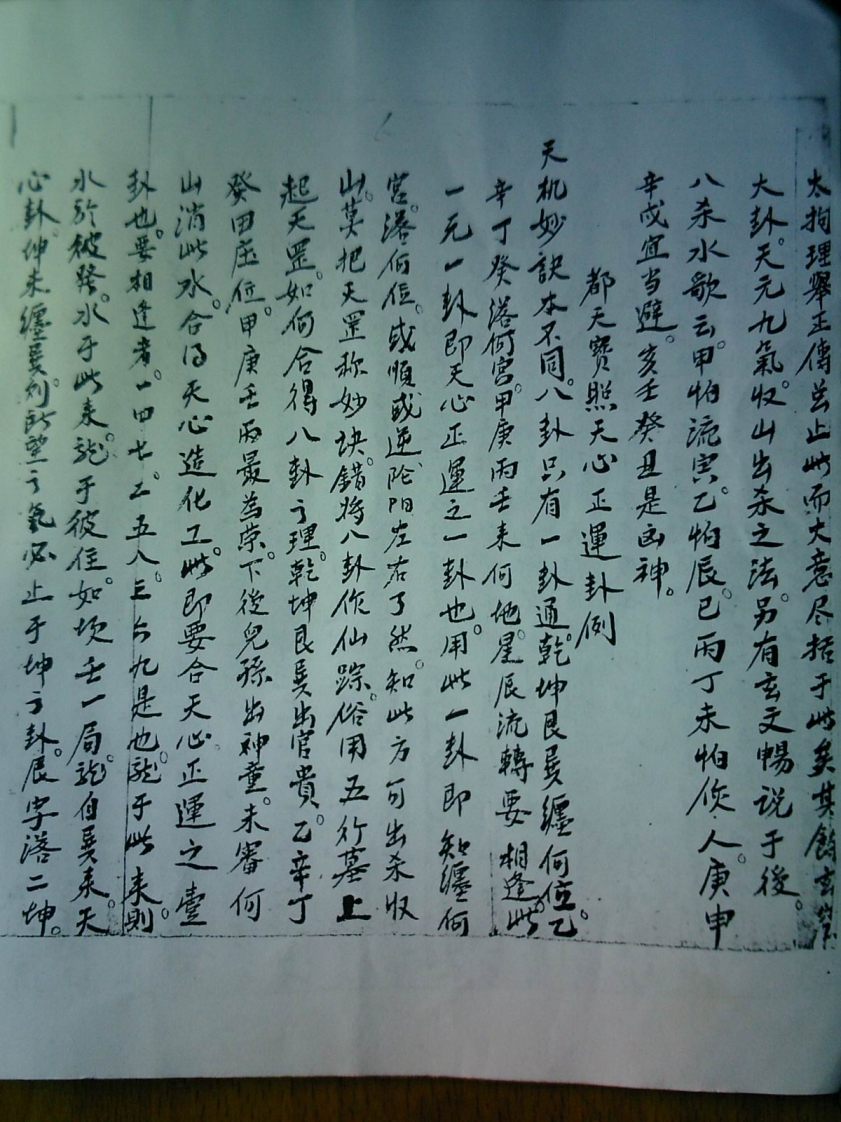 太拘理舉正傳茲止此而大意尽括于此矣其餘玄
大卦。天元九氣。收山出杀之法。另有玄文暢説于後。
八杀水歌云。甲怕流寅。乙怕辰。巳丙丁未怕佽人。庚申
辛戍宜当避。亥壬癸丑是凶神。
都天寶照天心正運卦例
天机妙訣本不同。八卦只有一卦通。乾坤艮巽纏何位。乙
辛丁癸落何宫。甲庚丙壬来何地。星辰流轉要相逢。此
一元一卦即天心正運之一卦也。用此一卦即知纏何
宫。落何位。或順或逆。陰阳左右了然。知此方可出杀收
山。莫把天罡称妙訣。錯将八卦作仙踪。俗用五行墓上
起天罡。如何合得八卦之理。乾坤艮巽出官貴。乙辛丁
癸田庄位。甲庚壬丙最為荣。下後兒孫出神童。未審何
山消此水。合得天心造化工。此即要合天心正運之壹
卦也。要相逢者。一四七二五八三六九是也。龍于此来則。
水於彼發。水于此来。龍于彼住。如坎壬一局。龍自巽来。天
心卦。坤未纏巽。則所望之氣必止于坤之卦。辰字落二坤。